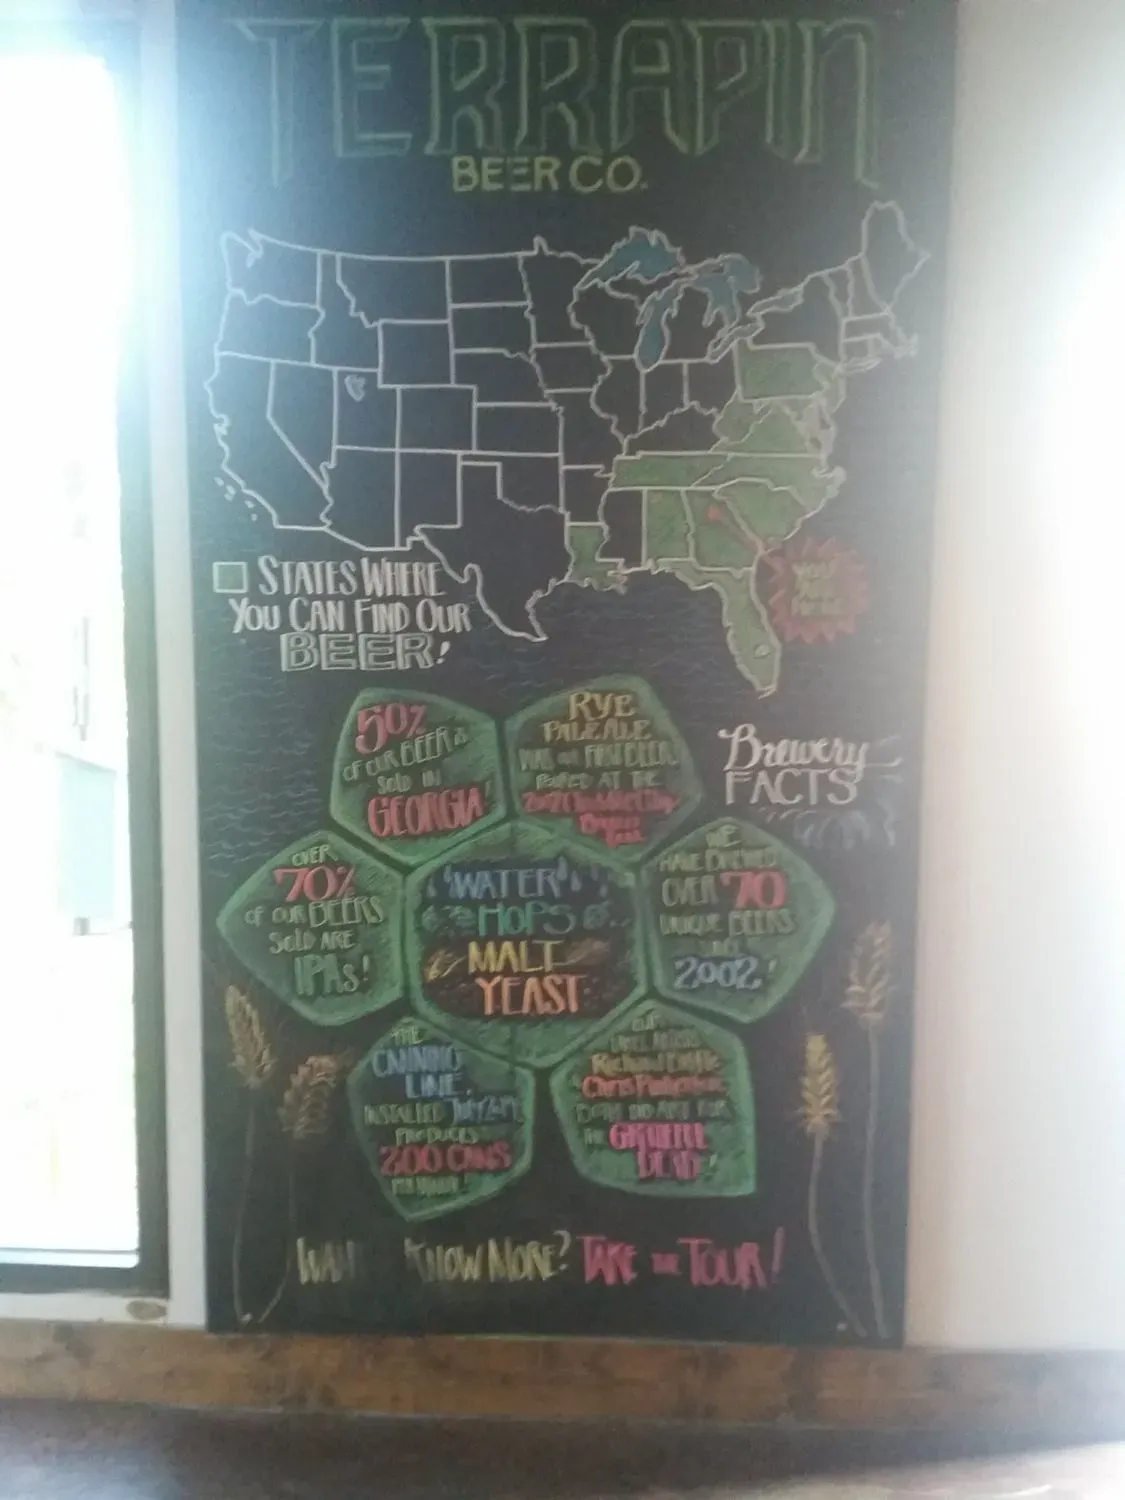 TERRAPIN
BEER CO.
STATES WHERE
YOU CAN FIND OUR
BEER!
YOU
ARE
HERE
50%
OF OUR BEER IS
SOLD IN
GEORGIA!
RYE
PALE ALE
WAS OUR FIRST BEER
POURED AT THE
Brewery
FACTS
OVER
70%
OF OUR BEERS
SOLD ARE
IPAs!
WATER
HOPS
MALT
YEAST
WE
HAVE BREWED
OVER 70
UNIQUE BEERS
SINCE
2002!
THE
CANNING
LINE,
INSTALLED July 2014
PRODUCES
200 CANS
OUR
LABEL ARTISTS
Richard
Chris
BOTH DID ART FOR
THE GRATEFUL
DEAD!
KNOW MORE? TAKE THE TOUR!